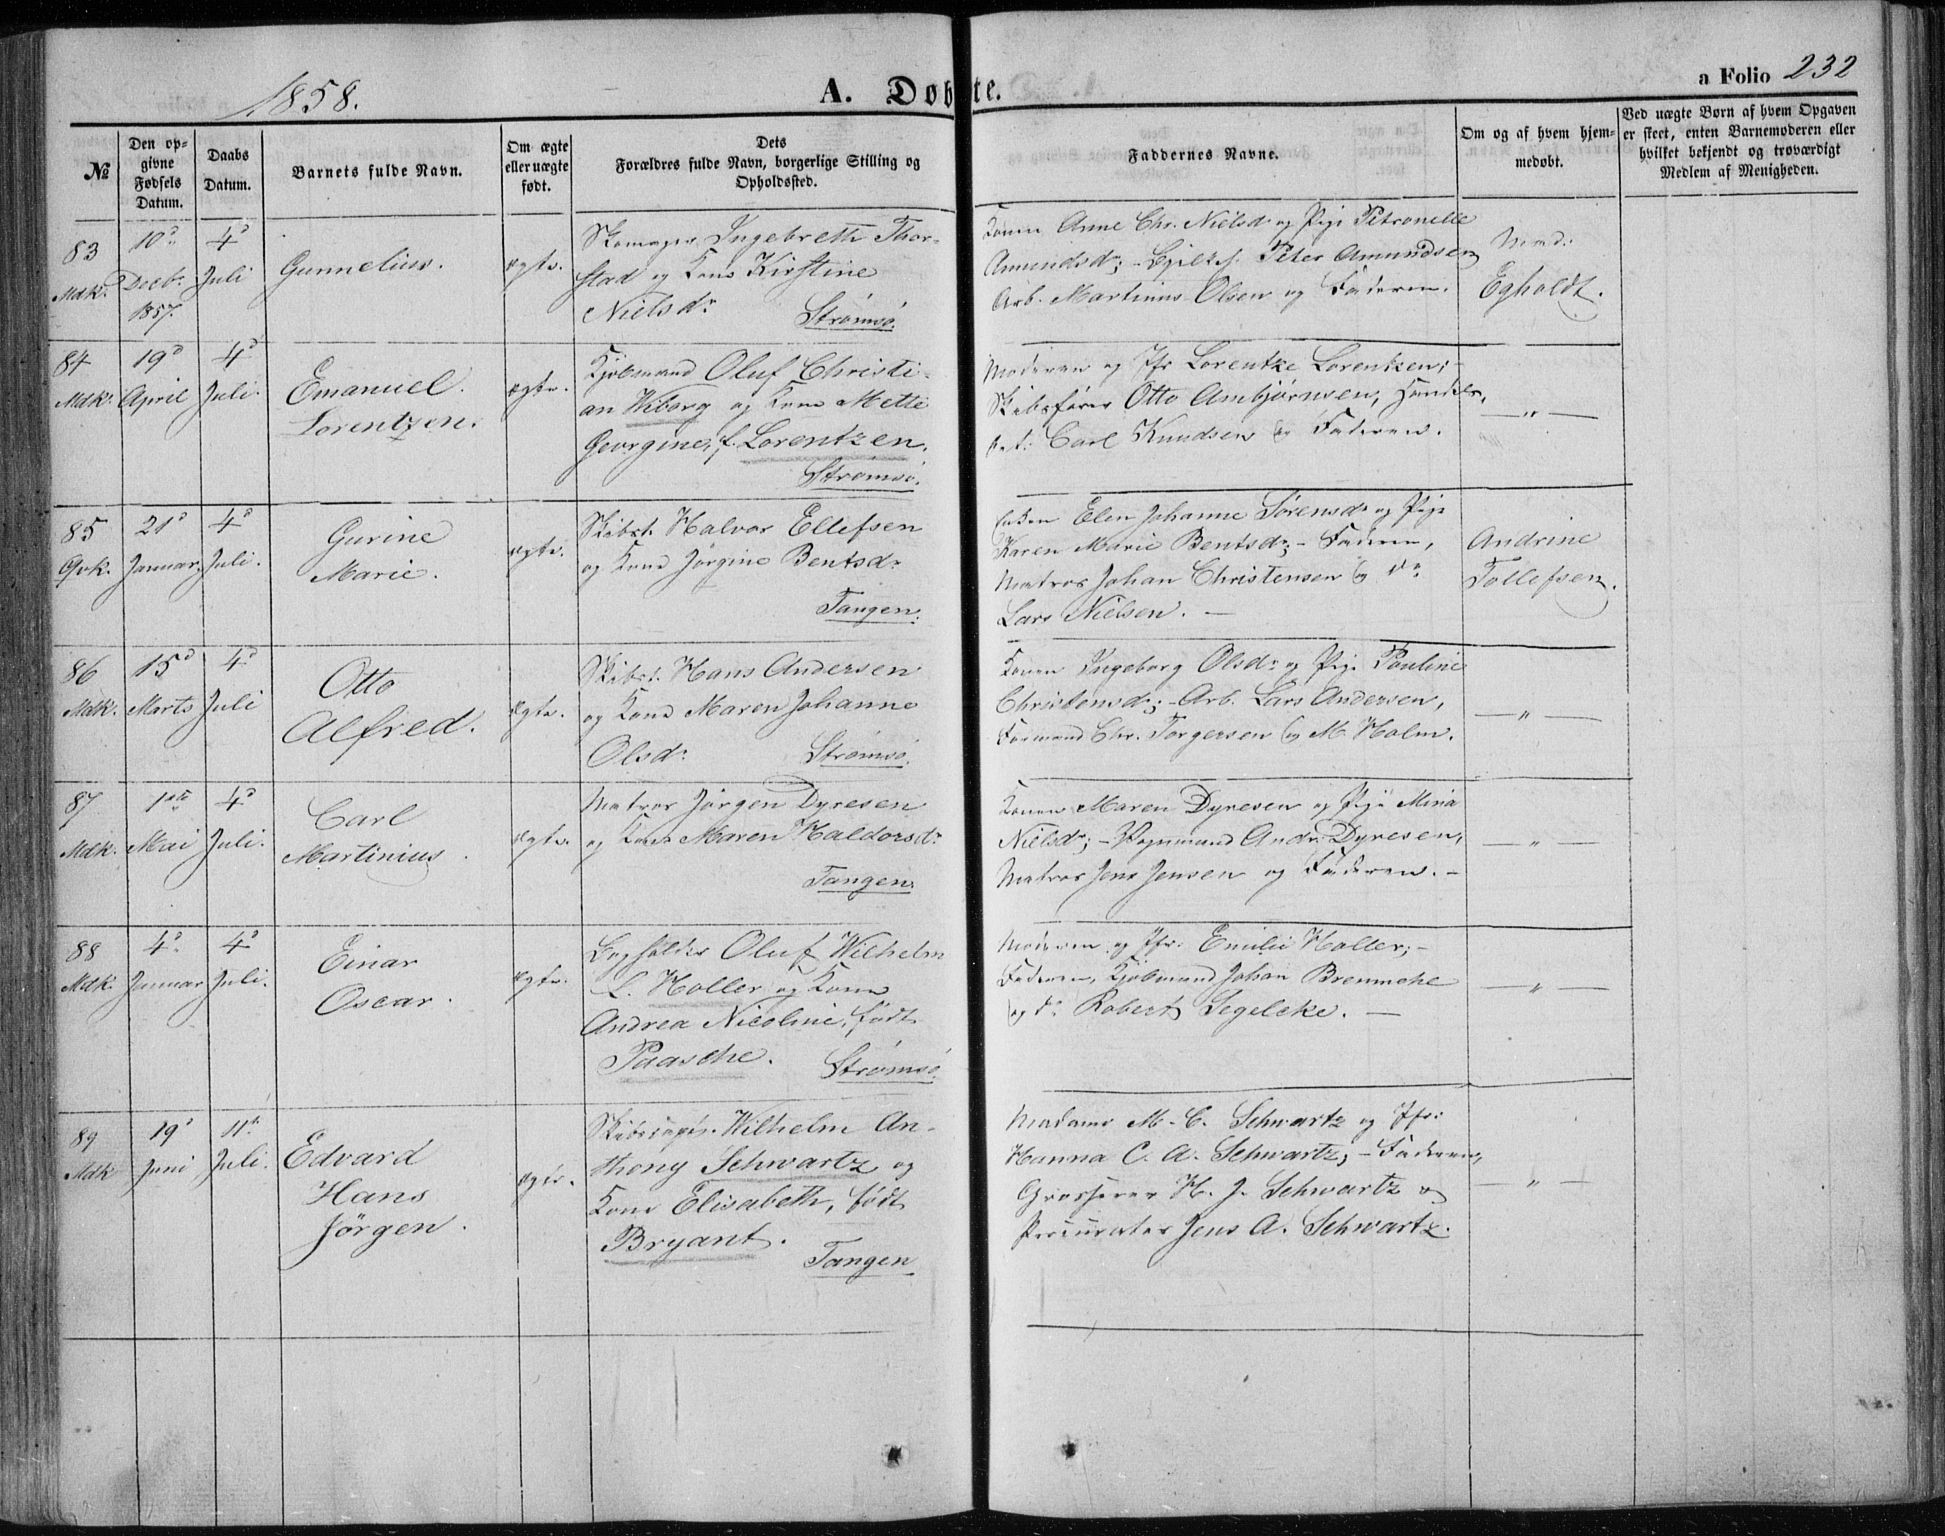 1858.
A. Døbte.
a Folio 232
№
Den op-
givne
Fødsels
Datum.
Daabs
Datum.
Barnets fulde Navn.
Om ægte
eller uægte
født.
Dets
Forældres fulde Navn, borgerlige Stilling og
Opholdssted.
Faddernes Navne.
Om og af hvem hjem-
medøbt.
Ved uægte Børn af hvem Opgaven
er skeet, enten Barnemoderen eller
hvilket bekjendt og troværdigt
Medlem af Menigheden.
83
Mdk.
10d
Decbr.
1857.
4d
Juli
Gunnelius.
ægte.
Skomager Ingebreth Thor-
stad og Kone Kirstine
Nielsdr
Strømsø.
Konen Anne Chr. Nielsdr og Pige Petronelle
Amundsdr; - Peter Amundsen
Arb. Martinus Olsen og Faderen.
Mad:
Egholdt.
84
Mdk.
19d
April
4d
Juli.
Emanuel
Lorentzen.
ægte.
Kjøbmand Oluf Christi-
an Wiborg og Kone Mette
Georgine, f. Lorentzen.
Strømsø.
Moderen og Jfr Lorentze Lorentzen; -
Skibsfører Otto Ambjørnsen, Handels-
bet: Carl Knudsen og Faderen.
— " —
85
Qvk.
21d
Januar
4d
Juli.
Gurine
Marie.
ægte.
Skibst. Halvor Ellefsen
og Kone Jørgine Bentsdr
Tangen.
Enken Elen Johanne Sørensdr og Pige
Karen Marie Bentsdr; - Faderen,
Matros Johan Christensen og do
Lars Nielsen. —
Andrine
Tollefsen.
86
Mdk.
15d
Marts
4d
Juli
Otto
Alfred.
ægte.
Skibst. Hans Andersen
og Kone Maren Johanne
Olsdr
Strømsø.
Konen Ingeborg Olsdr og Pige Pauline
Christensdr; - Arb. Lars Andersen,
Formand Chr. Torgersen og M. Holm.
— " —
87
Mdk.
1ste
Mai
4d
Juli.
Carl
Martinius.
ægte.
Matros Jørgen Dyresen
og Kone Maren Haldorsdr
Tangen.
Konen Maren Dyresen og Pige Mina
Nielsdr; - Vognmand Andr. Dyresen,
Matros Jens Jensen og Faderen. -
— " —
88
Mdk.
4d
Januar
4d
Juli.
Einar
Oscar.
ægte.
Bogholder Oluf Wilhelm
L. Holler og Kone
Andrea Nicoline, født
Paasche.
Strømsø.
Moderen og Jfr: Emilie Holler; -
Faderen, Kjøbmand Johan Bremmehe
og do Robert Segelcke. —
— " —
89
Mdk
19d
Juni
11te
Juli.
Edvard
Hans
Jørgen.
ægte.
Skibscapt. Wilhelm An-
thony Schwartz og
Kone Elisabeth, født
Bryant.
Tangen
Madame M. C. Schwartz og Jfr:
Hanna C. A. Schwartz; - Faderen,
Grosserer H. J. Schwartz og
Procurator Jens A. Schwartz.
— " —